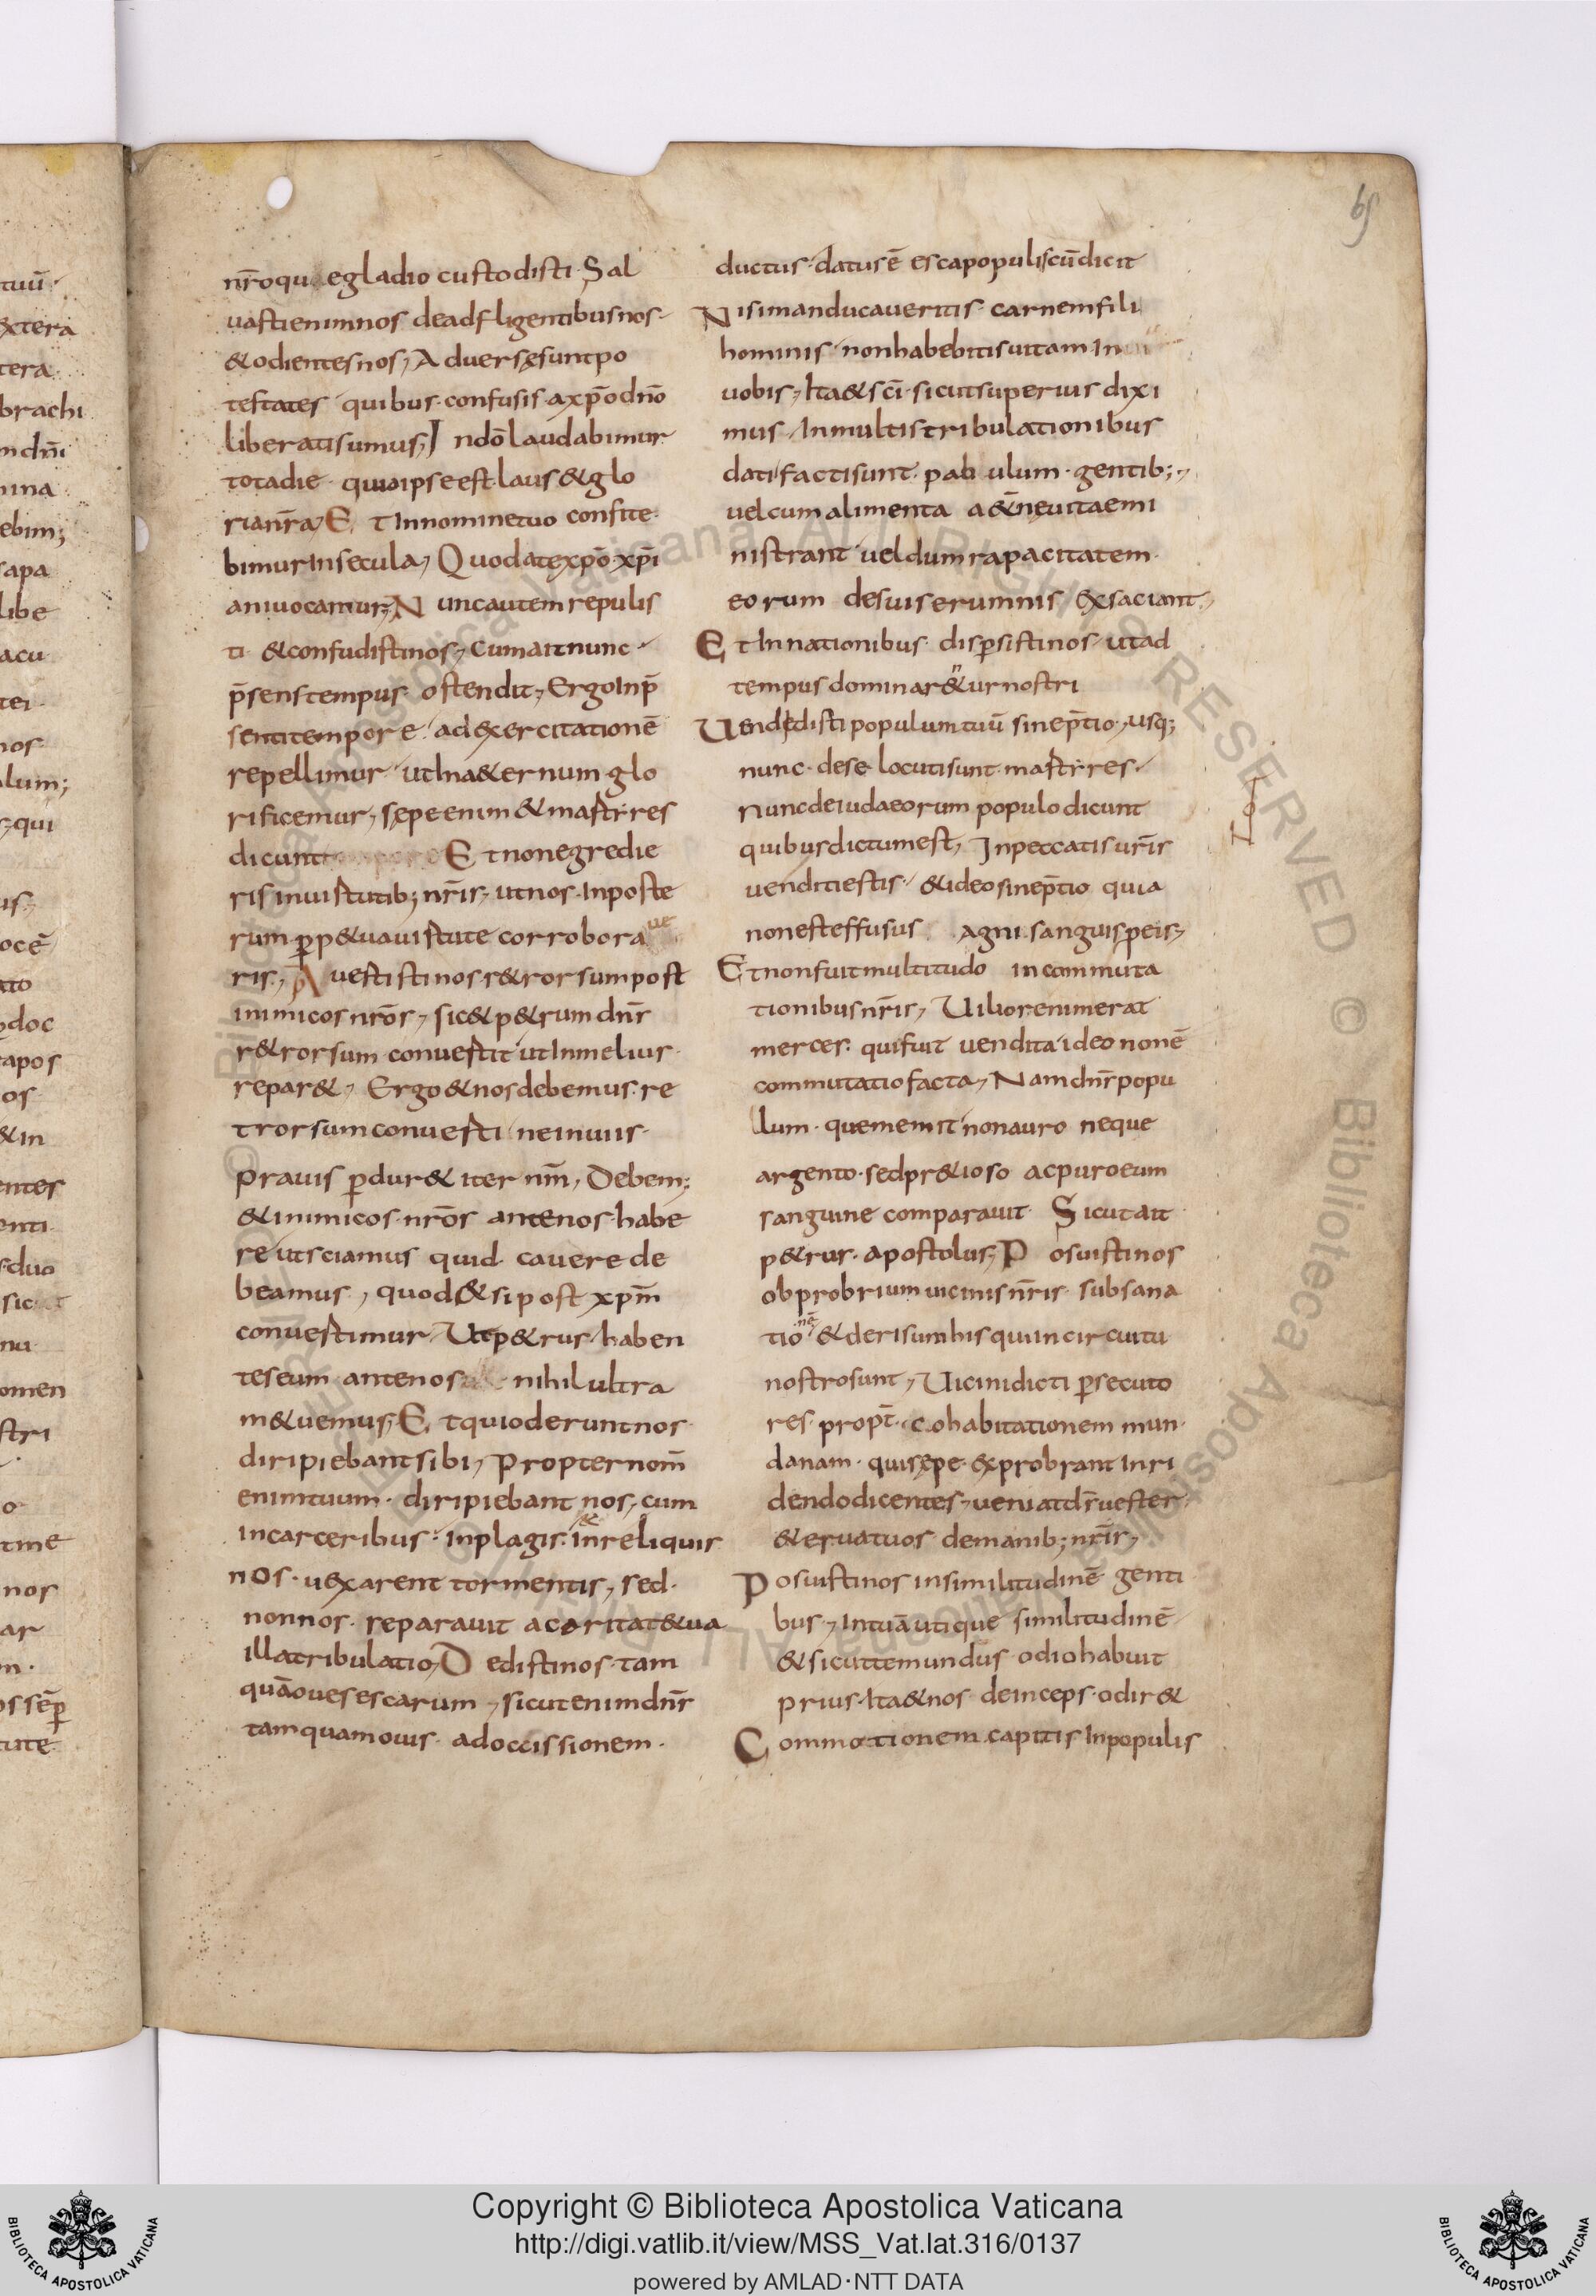 65
nr̄oqu egladio custodisti· Sal
uastienimnos deadfligentibusnos·
&odientesnos, Aduersęsuntpo
testates quibus· confusis· axp̄odn̄o
liberatisumus, Indō laudabimur
totadie· quiaipseest laus&glo
rianr̄a, Et Innominetuo confite·
bimurInsecula, Quodatexpō· xpī
aniuocamur, Nuncautemrepulis
ti &confudistinos, Cumaitnunc·
p̄senstempus· ostendit, ErgoInp̄
sentitempore adexercitationē
repellimur utIna&ernum glo
rificemur, sępeenim&martires
dicunt Etnonegredie
risinuirtutib; nr̄is, utnos· Inposte
rum p̄p&uauirtute corrobora ue
ris, Auertistinosr&rorsumpost
inimicosnrōs, sic&p&rum dnr̄
r&rorsum conuertit utInmelius·
repar&, Ergo&nosdebemus· re
trorsumconuerti neinuiis·
prauis p̄dur& iter nr̄m, Debem;
&inimicos· nrōs antenos· habe
re utsciamus quid· cauere de
beamus, quod&sipost xpm̄
conuertimur, Utp&rus· haben
teseum antenos nihilultra
m&uemus, Etquioderuntnos·
diripiebantsibi, Propternom̄
enimtuum· diripiebant nos, cum
incarceribus· inplagis· & inreliquis
nos· uexarent tormentis, sed·
nonnos· reparauit acaritat&ua
illatribulatio, Dedistinos· tam
quāouesescarum, sicutenimdnr̄
tamquamouis· adoccissionem·
ductus· datusē escapopuliscūdicit
Nisimanducaueritis· carnemfili
hominis nonhabebitisuitamIn
uobis, Ita&scī· sicutsuperius dixi
mus· Inmultistribulationibus
dati factisunt· pabulum· gentib;,
uelcumalimenta a&n̄ęuitaemi
nistrant ueldumrapacitatem·
eorum desuiserumnis exsaciant,
EtInnationibus· disp̄sistinos· utad
tempusdominar&urnostri
Uendedistipopulumtuū sinep̄tio, usq;
nunc· dese locutisunt martires·
Nuncdeiudaeorum populodicunt
quibusdictumest, Inpeccatisur̄is
uenditiestis· &ideosinep̄tio quia
nonesteffusus agni sanguisp̄eis,
Etnonfuitmultitudo incommuta
tionibusnr̄is, Uiliorenimerat
merces· quifuit uendita ideo nonē
commutatiofacta, Namdnr̄popu
lum· quememit nonauro neque
argento· sedpr&ioso acpuroeum
sanguine comparauit· Sicutait
p&rus· apostolus, Posuistinos
obprobriumuicinisnr̄is· subsana
tionē &derisumhisquiincircuitu
nostrosunt, Uicinidicti p̄secuto
res· propt̄· cohabitationem mun·
danam· quisępe· exprobrant Inri
dendodicentes, ueniatdr̄uester
&eruatuos demanib; nr̄is,
Posuistinos insimilitudinē genti
bus, Intuāutique similitudinē
&sicuttemundus odiohabuit
prius· Ita&nos deinceps· odir&
Commotionem capitis Inpopulis
Copyright © Biblioteca Apostolica Vaticana
http://digi.vatlib.it/view/MSS_Vat.lat.316/0137
powered by AMLAD·NTT DATA